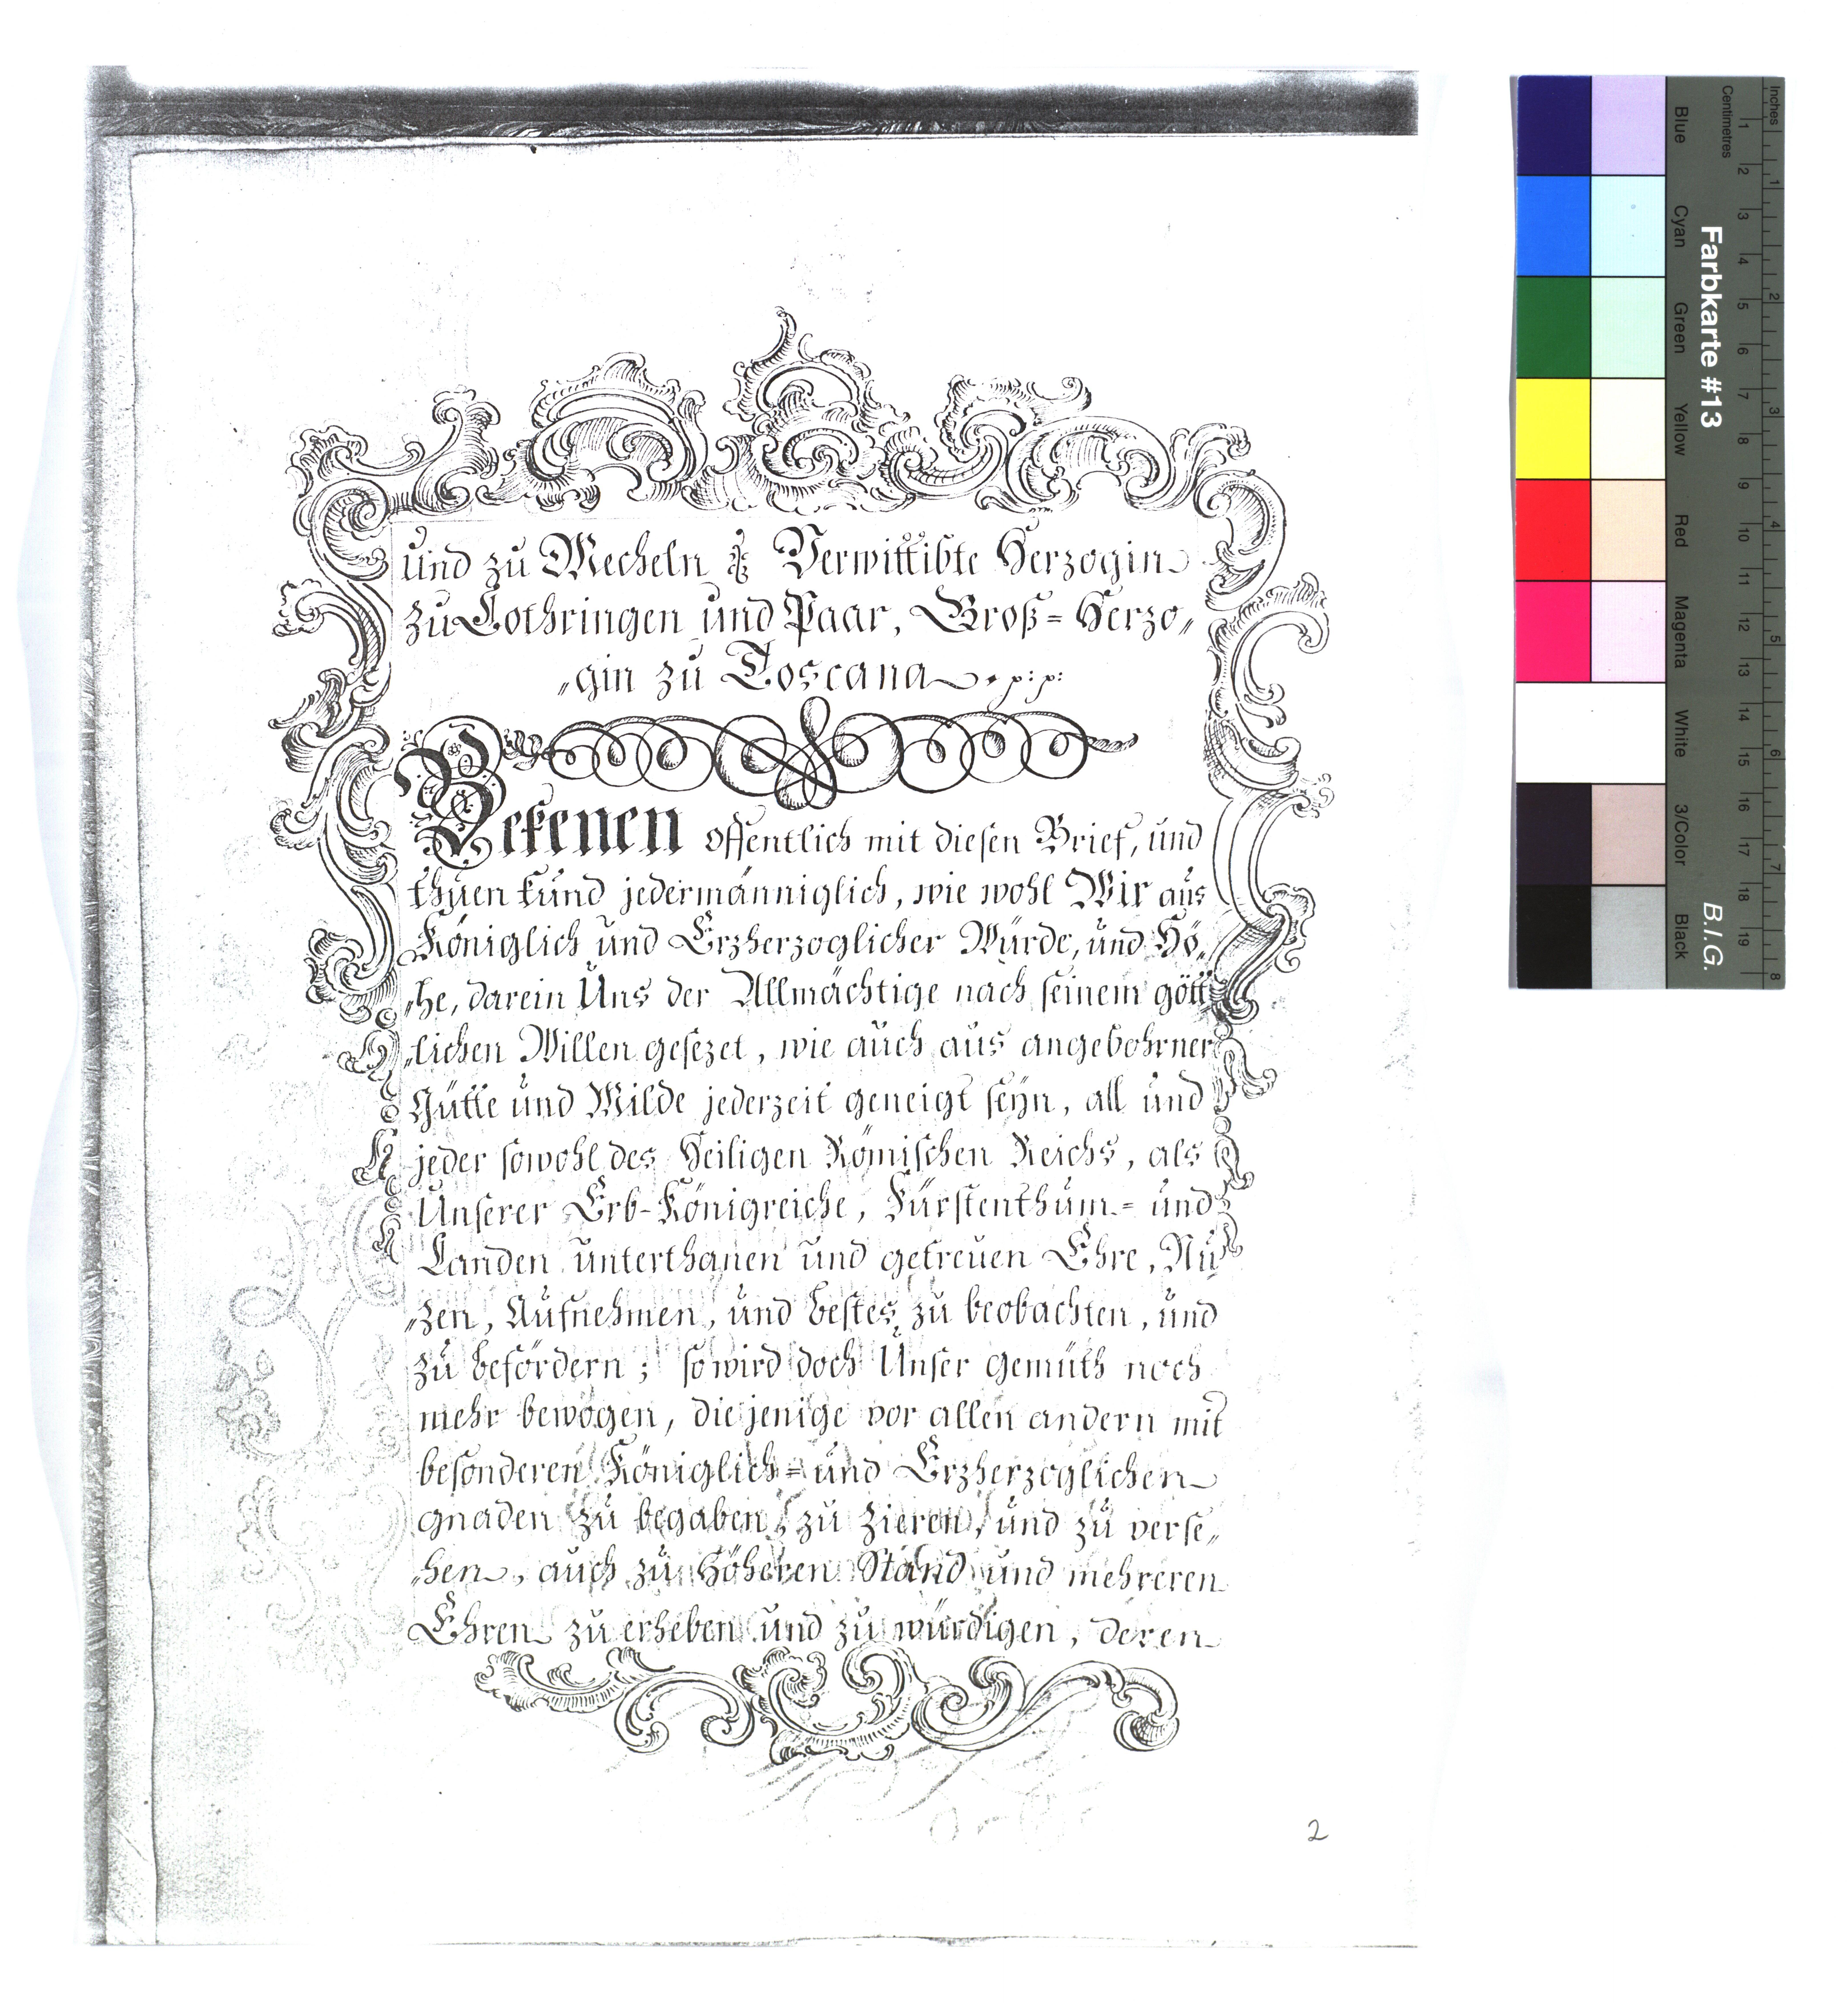 und zu Mecheln Verwittibte Herzogin
zu Lothringen und Paar, Groß= Herzo„
„gin zu Toscana p: p:
Bekenen offentlich mit diesen Brief, und
thuen kund jedermänniglich, wie wohl Wir aus
Königlich und Erzherzoglicher Würde, und Hö„
„he, darein Uns der Allmächtige nach seinem gött
„lichen Willen gesezet, wie auch aus angebohrner
Gütte und Milde jederzeit geneigt seyn, all und
jeder sowohl des Heiligen Römischen Reichs, als
Unserer Erb-Königreiche, Fürstenthum= und
Landen unterthanen und getreuen Ehre, Nu
„zen, Aufnehmen, und bestes zu beobachten, und
zu befördern; so wird doch Unser gemüth noch
mehr bewogen, diejenige vor allen andern mit
besonderen Königlich= und Erzherzoglichen
gnaden zu begaben, zu zieren, und zu verse„
„hen, auch zu Höheren Stand und mehreren
Ehren zu erheben und zu würdigen, deren
2
Inches
Centimetres
1 2 3 4 5 6 7 8
1 2 3 4 5 6 7 8 9 10 11 12 13 14 15 16 17 18 19
Farbkarte #13
B.I.G.
Blue
Cyan
Green
Yellow
Red
Magenta
White
3/Color
Black